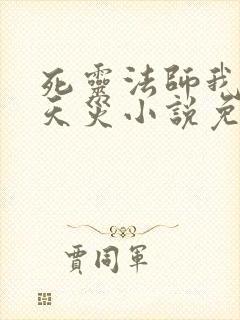 死靈法師我
天災小說免
賈同軍